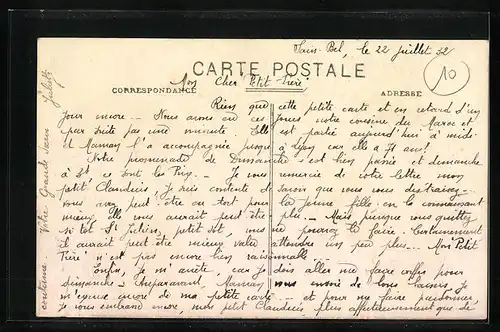 Sain-Bel, le 22 juillet 32
CARTE POSTALE
CORRESPONDANCE
ADRESSE
Mon Cher Petit Frère
10
Rien que cette petite carte et en retard d'un
jour encore — Nous avons eu ces jours notre cousine du Maroc et
par suite pas une minute. Elle est partie aujourd'hui à midi
et Maman l'a accompagnée jusque à Lyon car elle a 71 ans!
Notre promenade de Dimanche s'est bien passée et demanche
à St ce sont les Prix — Je vous remercie de votre lettre mon
petit Claudius, je suis contente de savoir que vous vous distrayez —
vous avez peut-être eu tort pour la jeune fille en la connaissant
mieux. Elle vous aurait peut être plu — Mais puisque vous quittez
si tôt St Julien, vous ne pourrez le faire. Certainement
il aurait peut être mieux valu attendre un peu plus — Mon Petit
Frère n'est pas encore bien raisonnable
Enfin, je m'arrête, car je dois aller me faire coiffer pour
dimanche — Auparavant, Maman vous envoie de bons baisers, je
m'excuse encore de ma petite carte — et pour me faire pardonner,
je vous embrasse encore, mon petit Claudius plus affectueusement que de
coutume. Votre Grande sœur Juliette